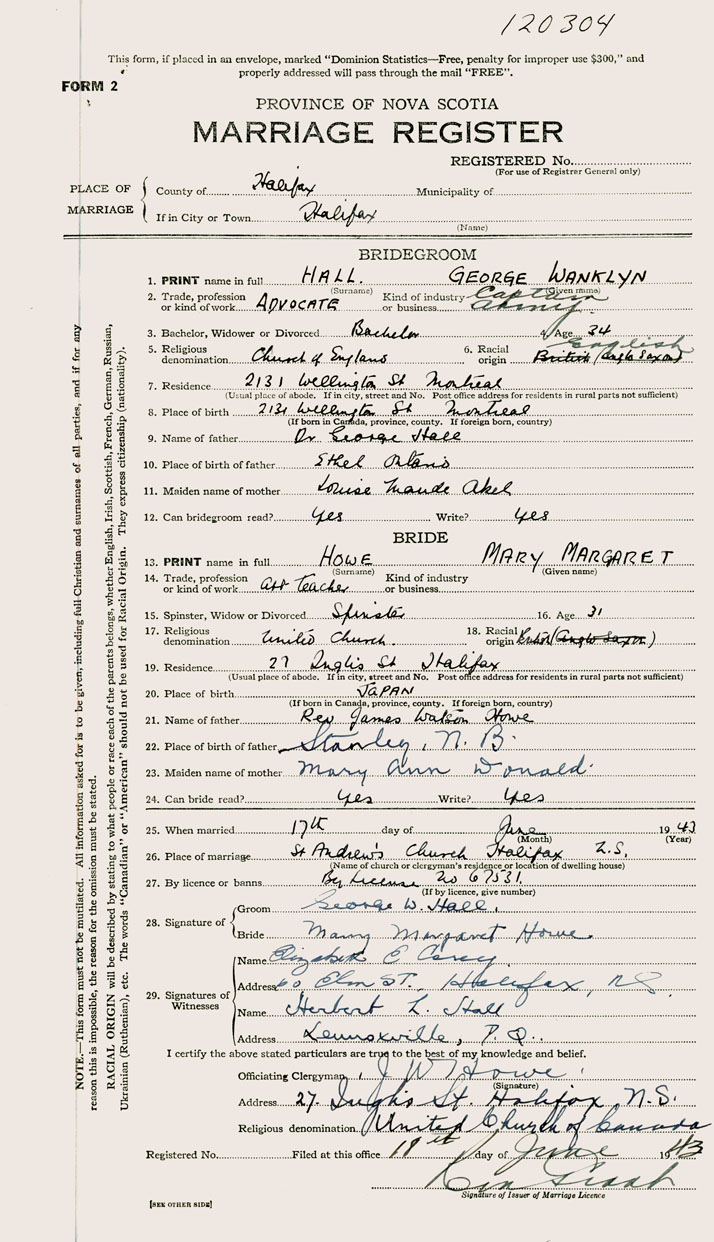 120304
This form, if placed in an envelope, marked "Dominion Statistics—Free, penalty for improper use $300," and
properly addressed will pass through the mail "FREE".
FORM 2
PROVINCE OF NOVA SCOTIA
MARRIAGE REGISTER
REGISTERED No.
(For use of Registrar General only)
PLACE OF MARRIAGE
County of Halifax Municipality of
If in City or Town Halifax
(Name)
BRIDEGROOM
1. PRINT name in full HALL. GEORGE WANKLYN
(Surname) (Given name)
2. Trade, profession or kind of work ADVOCATE Kind of industry or business Captain Army
3. Bachelor, Widower or Divorced Bachelor 4. Age 34
5. Religious denomination Church of England 6. Racial origin English British (Anglo Saxon)
7. Residence 2131 Wellington St Montreal
(Usual place of abode. If in city, street and No. Post office address for residents in rural parts not sufficient)
8. Place of birth 2131 Wellington St Montreal
(If born in Canada, province, county. If foreign born, country)
9. Name of father Dr. George Hall
10. Place of birth of father Ethel Ontario
11. Maiden name of mother Louise Maude Abel
12. Can bridegroom read? Yes Write? Yes
BRIDE
13. PRINT name in full HOWE MARY MARGARET
(Surname) (Given name)
14. Trade, profession or kind of work Art teacher Kind of industry or business
15. Spinster, Widow or Divorced Spinster 16. Age 31
17. Religious denomination United Church. 18. Racial origin (Anglo Saxon)
19. Residence 27 Inglis St Halifax
(Usual place of abode. If in city, street and No. Post office address for residents in rural parts not sufficient)
20. Place of birth JAPAN
(If born in Canada, province, county. If foreign born, country)
21. Name of father Rev James Watson Howe
22. Place of birth of father Stanley, N. B.
23. Maiden name of mother Mary Ann Donald
24. Can bride read? Yes Write? Yes
25. When married 17th day of June 1943
(Month) (Year)
26. Place of marriage St Andrew's Church Halifax N.S.
(Name of church or clergyman's residence or location of dwelling house)
27. By licence or banns By License No 67531
(If by licence, give number)
28. Signature of Groom George W. Hall.
Bride Mary Margaret Howe.
29. Signatures of Witnesses
Name Elizabeth E
Address 60 Elm ST. Halifax, N.S.
Name Herbert L. Hall
Address Lennoxville, P.Q.
I certify the above stated particulars are true to the best of my knowledge and belief.
Officiating Clergyman J W Howe
(Signature)
Address 27. Inglis St. Halifax, N.S.
Religious denomination United Church of Canada
Registered No. Filed at this office day of June 1943
Signature of Issuer of Marriage Licence
[SEE OTHER SIDE]
NOTE.—This form must not be mutilated. All information asked for is to be given, including full Christian and surnames of all parties, and if for any
reason this is impossible, the reason for the omission must be stated.
RACIAL ORIGIN will be described by stating to what people or race each of the parents belongs, whether English, Irish, Scottish, French, German, Russian,
Ukrainian (Ruthenian), etc. The words "Canadian" or "American" should not be used for Racial Origin. They express citizenship (nationality).